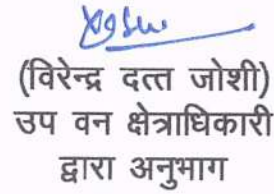 (विरेन्द्र दत्त जोशी)
उप वन क्षेत्राधिकारी
द्वारा अनुभाग